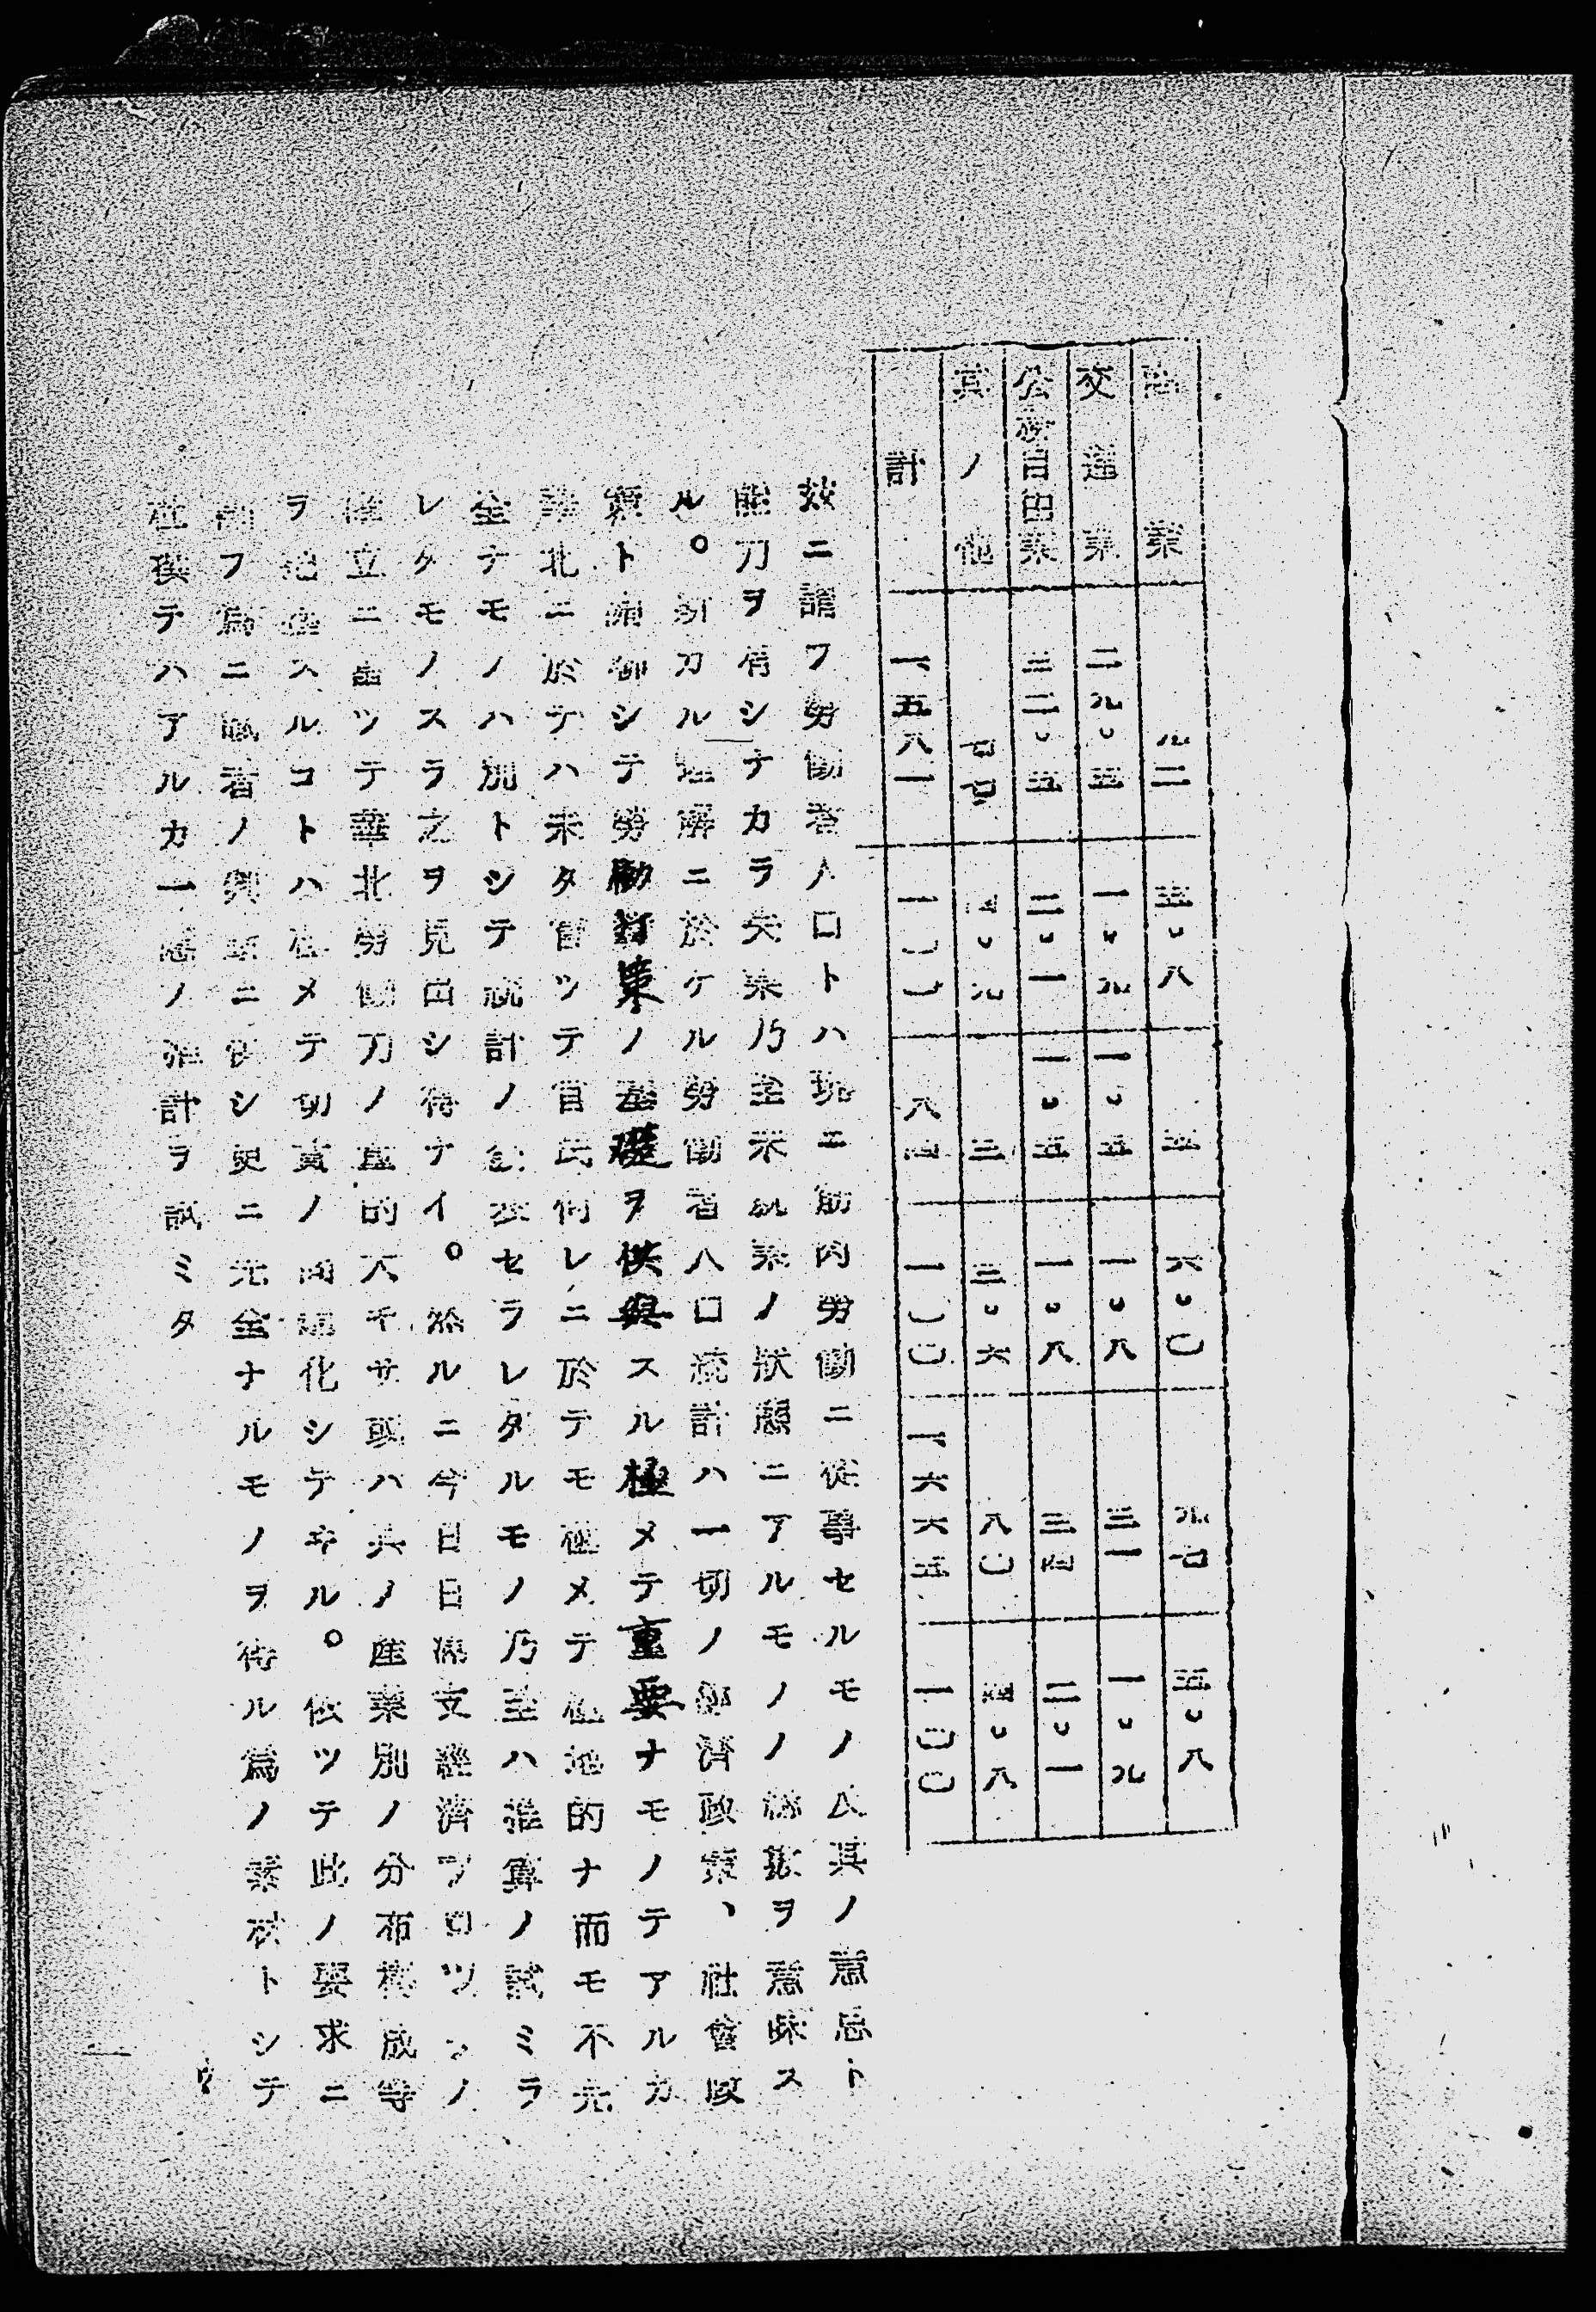 商業 九二 五・八 五 六・〇 九七 五・八
交通業 二九・五 一・九 一・五 一・八 三一 一・九
公務自由業 三二・五 二・一 一・五 一・八 三四 二・一
其ノ他 七七 四・九 三 三・六 八〇 四・八
計 一、五八一 一〇〇 八四 一〇〇 一、六六五 一〇〇
玆ニ謂フ勞働者人口トハ現ニ筋肉勞働ニ從事セルモノ及其ノ意思ト
能力ヲ有シナカラ失業乃至半失業ノ狀態ニアルモノノ總數ヲ意味ス
ル。斯カル理解ニ於ケル勞働者人口統計ハ一切ノ經濟政策、社會政
策ト關聯シテ勞働對策ノ基礎ヲ供與スル極メテ重要ナモノテアルカ
華北ニ於テハ未タ曾ツテ官民何レニ於テモ極メテ局地的ナ而モ不完
全ナモノハ別トシテ統計ノ公表セラレタルモノ乃至ハ推算ノ試ミラ
レタモノスラ之ヲ見出シ得ナイ。然ルニ今日日滿支經濟ブロツクノ
確立ニ當ツテ華北勞働力ノ量的大キサ或ハ共ノ產業別ノ分布構成等
ヲ把握スルコトハ極メテ切實ノ問題化シテヰル。依ツテ此ノ要求ニ
副フ爲ニ識者ノ輿論ニ訴シ更ニ完全ナルモノヲ得ル爲ノ素材トシテ
社撰テハアルカ一應ノ推計ヲ試ミタ